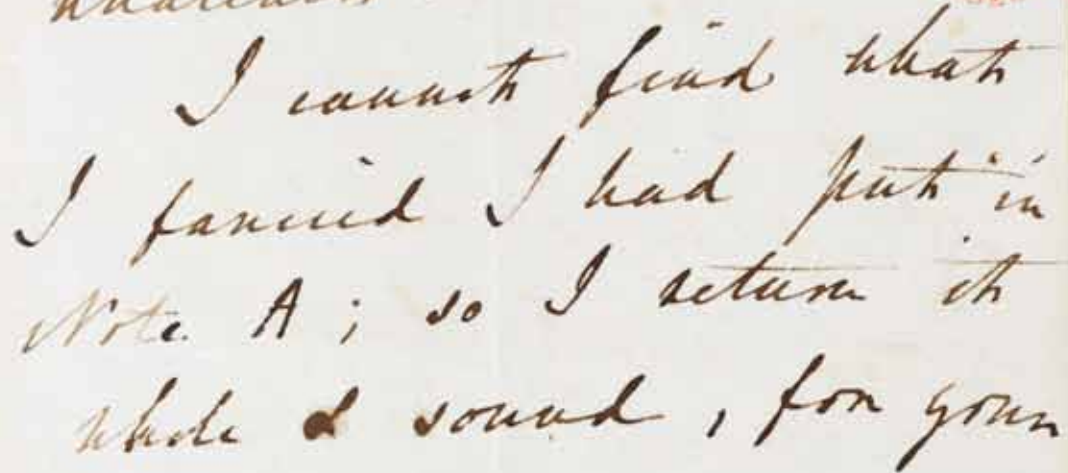 I cannot find what
I fancied I had put in
Note A ; so I return it
whole & sound, for your